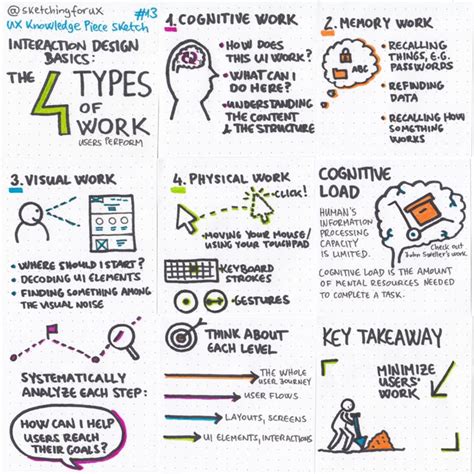 @sketchingforux
#13
UX Knowledge Piece Sketch
INTERACTION DESIGN
BASICS:
THE
4 TYPES
OF
WORK
USERS PERFORM
1. COGNITIVE WORK
• HOW DOES
THIS UI WORK?
• WHAT CAN I
DO HERE?
• UNDERSTANDING
THE CONTENT
& THE STRUCTURE
2. MEMORY WORK
ABC
• RECALLING
THINGS, E.G.
PASSWORDS
• REFINDING
DATA
• RECALLING HOW
SOMETHING
WORKS
3. VISUAL WORK
• WHERE SHOULD I START?
• DECODING UI ELEMENTS
• FINDING SOMETHING AMONG
THE VISUAL NOISE
4. PHYSICAL WORK
CLICK!
• MOVING YOUR MOUSE/
USING YOUR TOUCHPAD
• KEYBOARD
STROKES
• GESTURES
COGNITIVE
LOAD
HUMAN'S
INFORMATION
PROCESSING
CAPACITY
IS LIMITED.
Check out
John Sweller's work
COGNITIVE LOAD IS THE AMOUNT
OF MENTAL RESOURCES NEEDED
TO COMPLETE A TASK.
SYSTEMATICALLY
ANALYZE EACH STEP:
HOW CAN I HELP
USERS REACH
THEIR GOALS?
THINK ABOUT
EACH LEVEL
THE WHOLE
USER JOURNEY
USER FLOWS
LAYOUTS, SCREENS
UI ELEMENTS, INTERACTIONS
KEY TAKEAWAY
MINIMIZE
USERS'
WORK